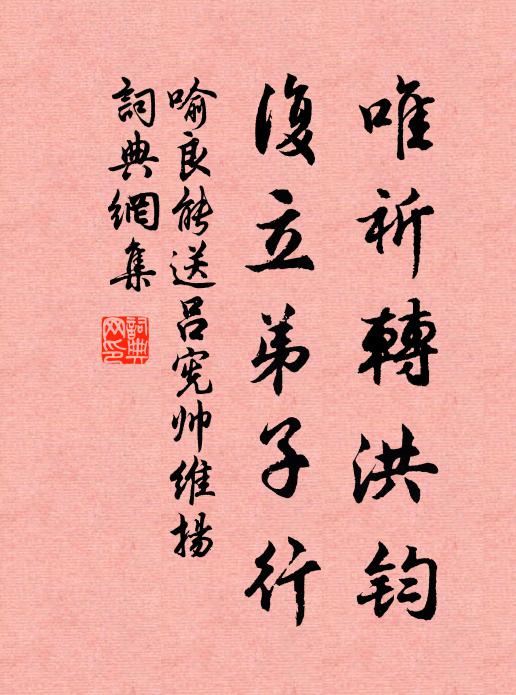 唯祈轉洪鈞
復立弟子行
喻良能送呂憲帥維揚
詞典網集
詞典网印